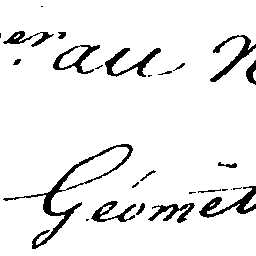 er. au
Géomèt